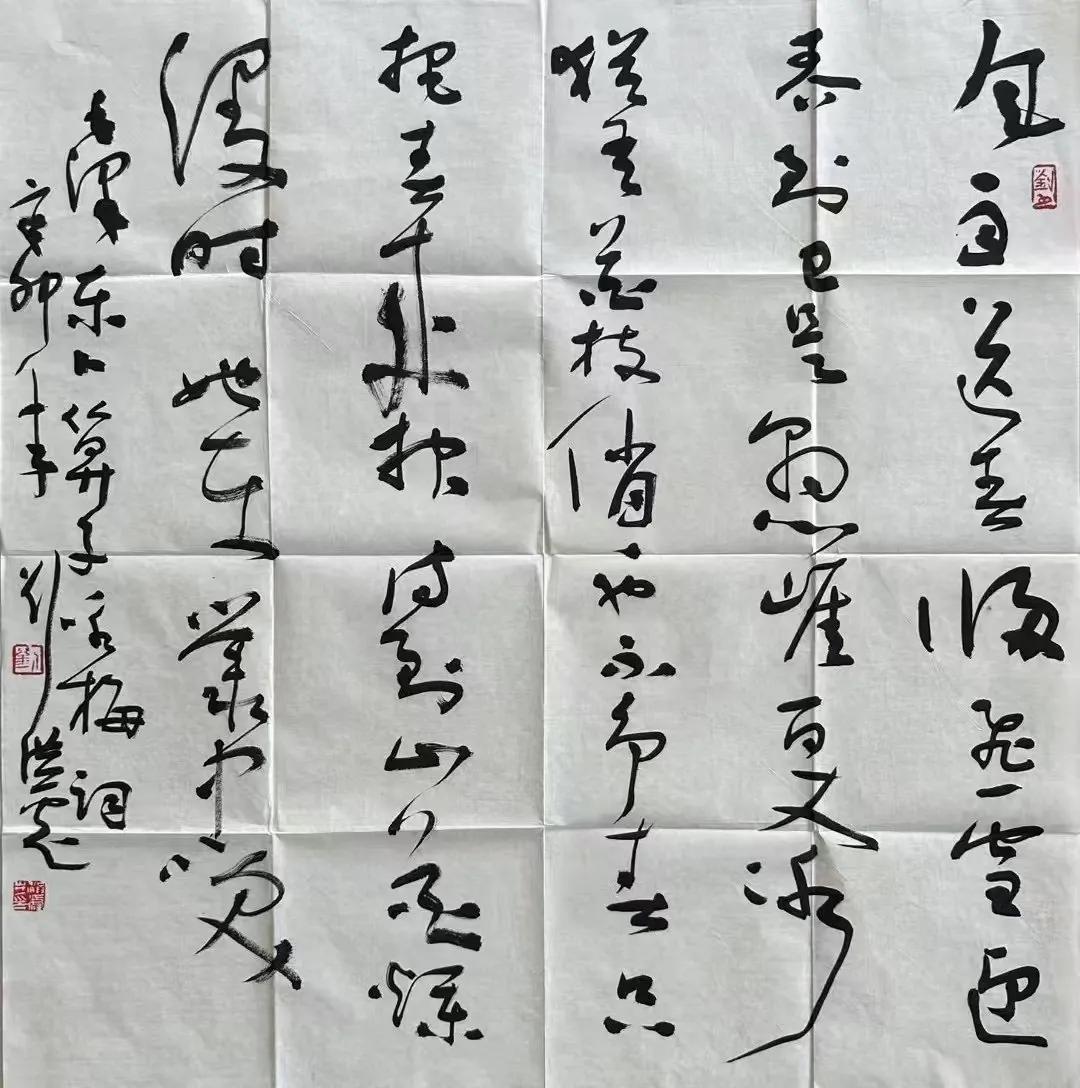 風雨送春归飛雪迎
春到已是懸崖百丈冰
猶有花枝俏、也不争春只
把春来报待到山花爛
漫时她在叢中笑
毛澤东卜算子咏梅詞
辛卯年 刘洪彪